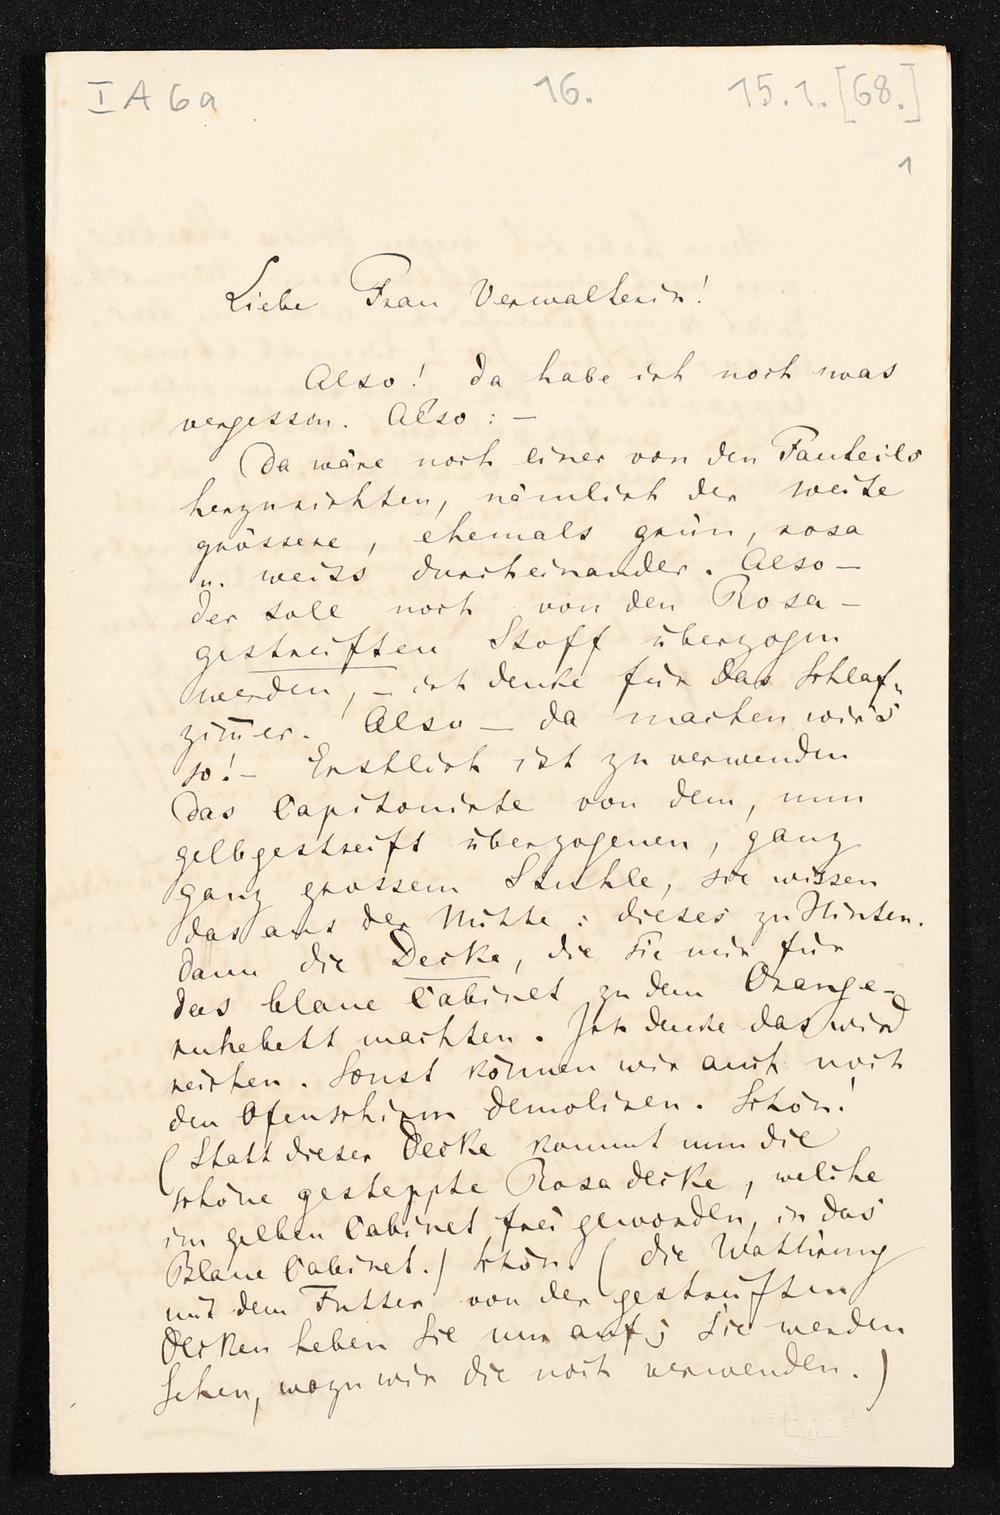 I A 6a 16. 15.1.[68.]
1
Liebe Frau Verwalterin!
Also! da habe ich noch was
vergessen. Also: –
Da wäre noch einer von den Fauteils
herzurichten, nämlich der zweite
grössere, ehemals grün, rosa
u. weiss durcheinander. Also –
der solle noch von den Rosa-
gestreiften Stoff überzogen
werden, – ich denke für das Schlaf-
zim̅er. Also – da machen wir's
so! – Erstlich ist zu verwenden
das Capitonirte von dem, nun
gelbgestreift überzogenen, ganz
ganz grossem Stuhle, Sie wissen
das aus der Mitte: dieses zu Hinten.
dann die Decke, die Sie mir für
das blaue Cabinet zu dem Orange-
ruhebett machten. Ich denke das wird
reichen. Sonst können wir auch noch
den Ofenschirm demoliren. Schön!
(Statt dieser Decke kommt nun die
schöne gesteppte Rosadecke, welche
im gelben Cabinet frei geworden, in das
Blaue Cabinet.) Schön. (die Wattirung
mit dem Futter von der gestreiften
Decken heben Sie nur auf; Sie werden
sehen, wozu wir die noch verwenden.)